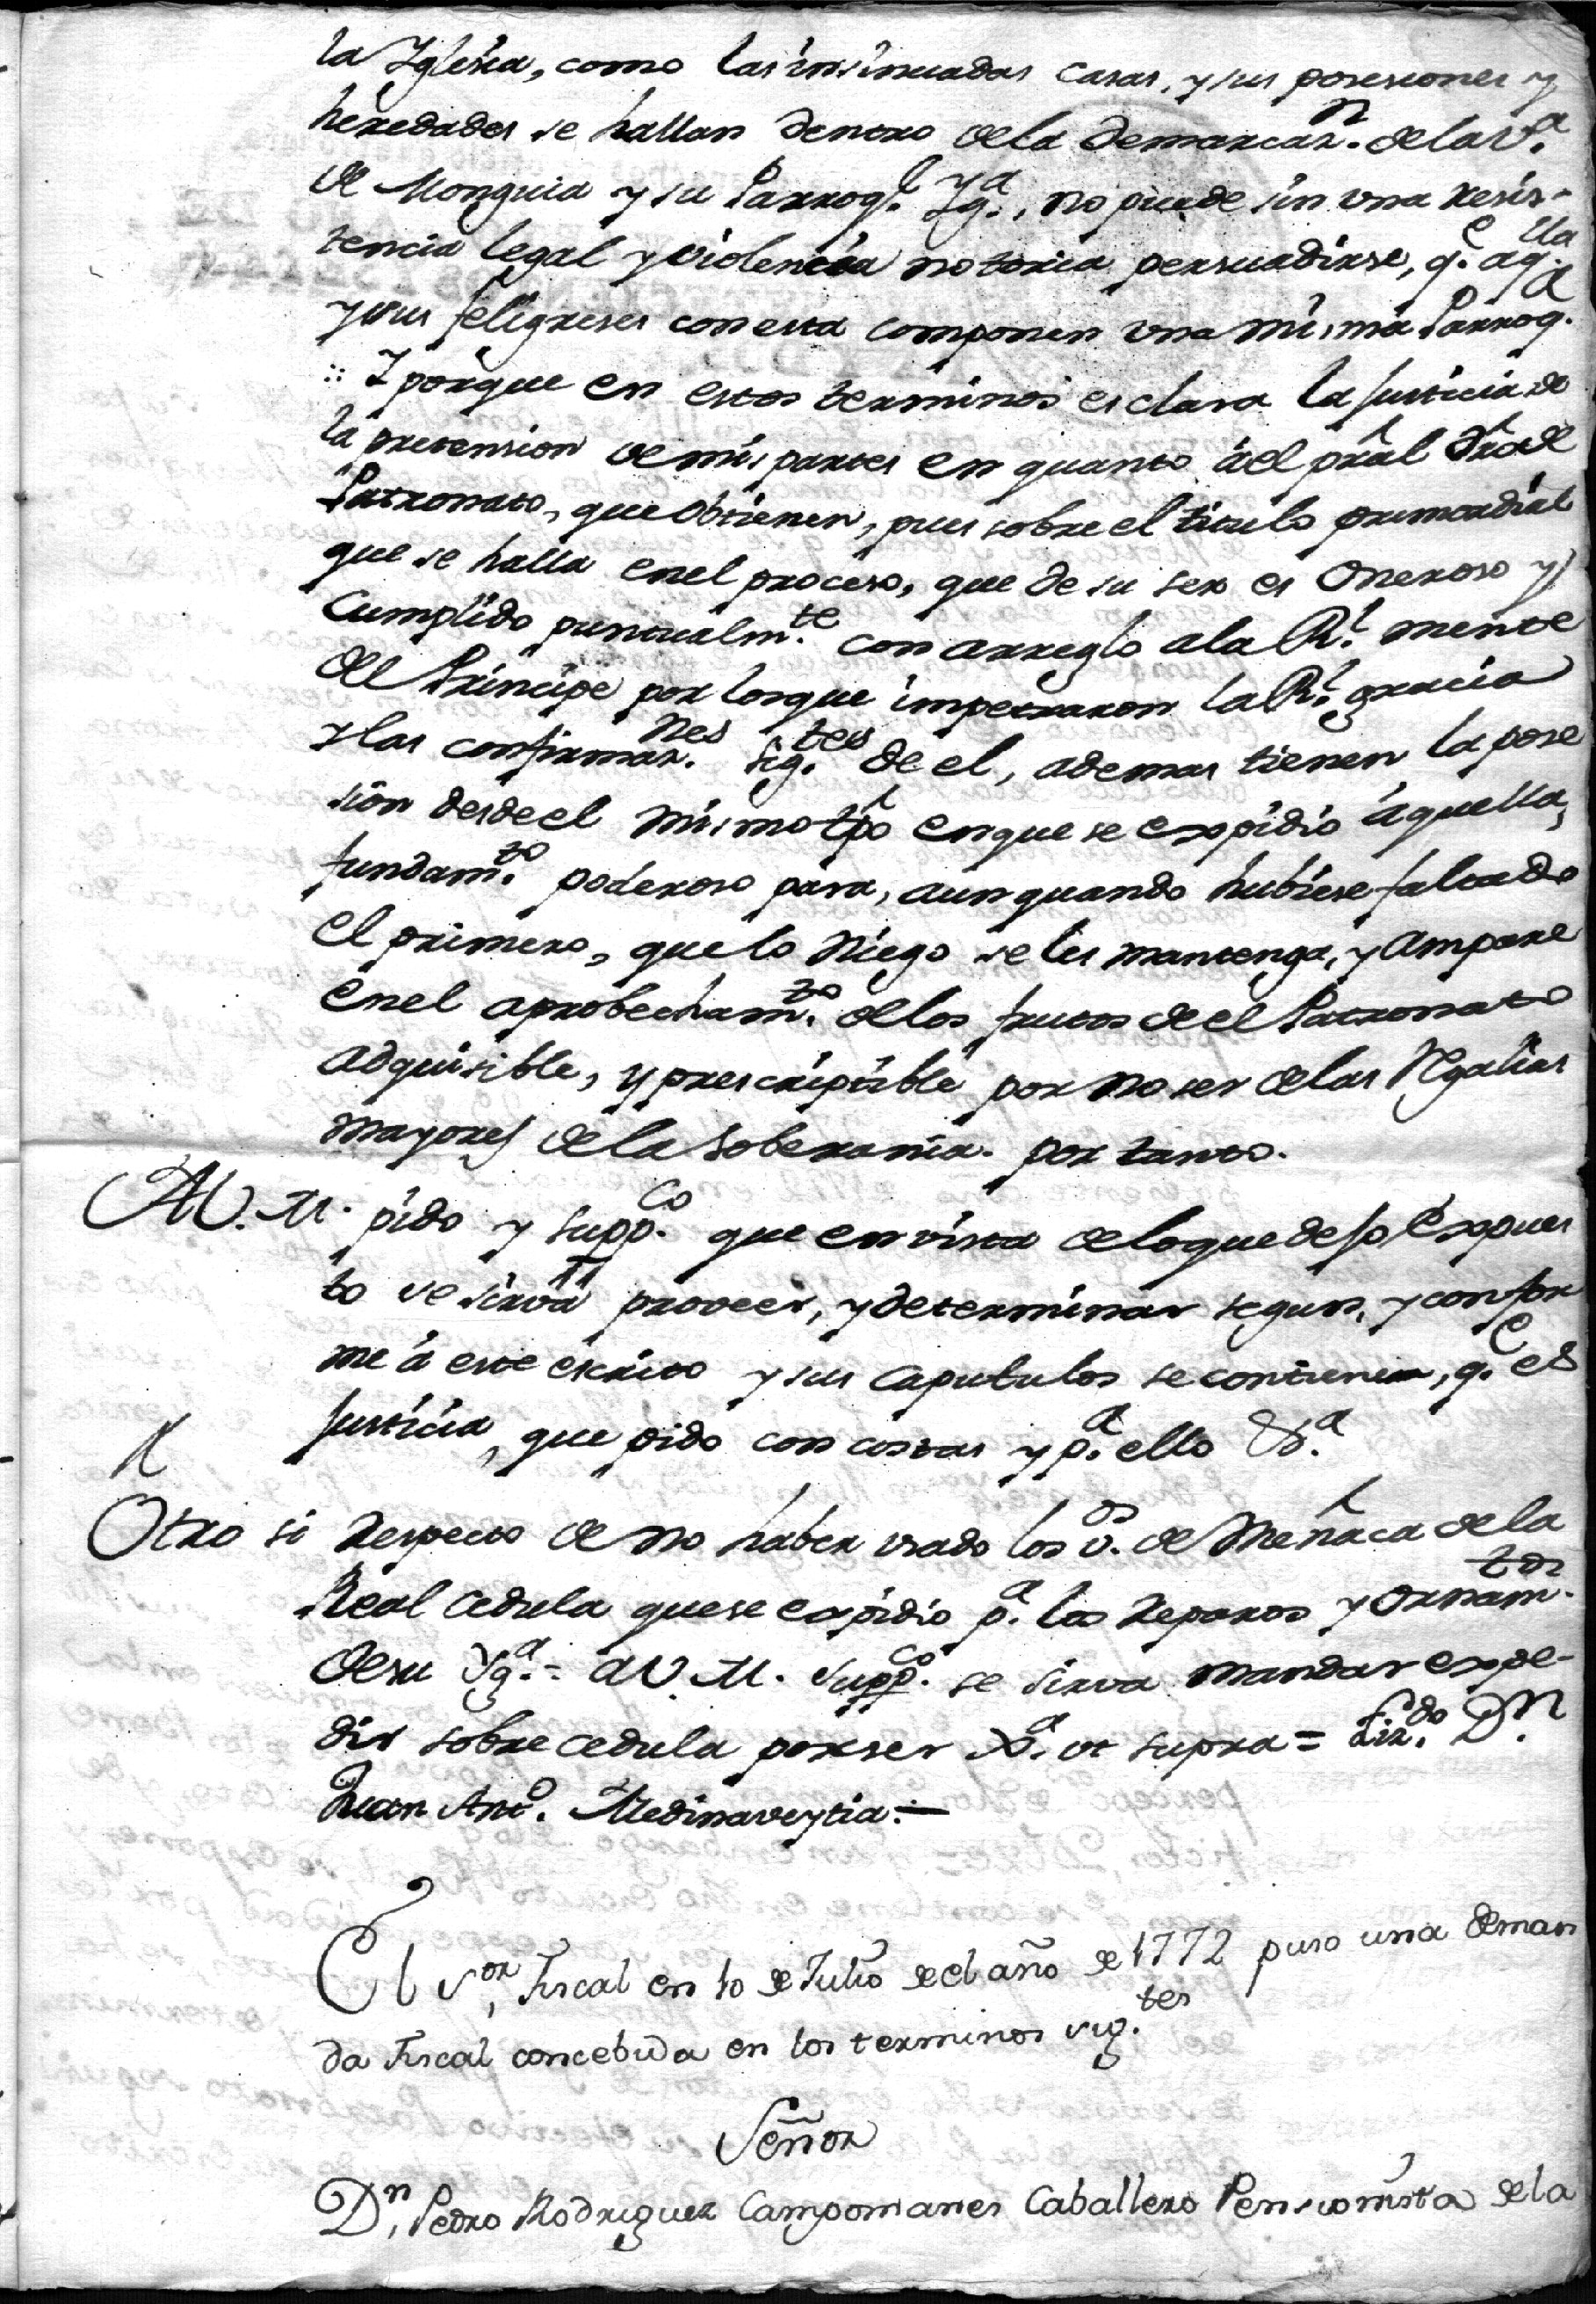 la Iglesia, como las insinuadas casas, y sus posesiones y
heredades se hallan dentro de la demarcaz.n de la V.a
de Monguia y su Parroq.l Yg.a, no puede sin una resis-
tencia legal y violencia notoria persuadirse, q.e aq.lla
y sus feligreses con esta componen una misma Parroq.a
:: I porque en estos terminos es clara la justicia de
la pretension de mis partes en quanto áel pral dro de
Patronato, que obtienen, pues sobre el titulo primordial
que se halla en el proceso, que de su ser es oneroso y
cumplido puntualm.te con arreglo a la R.l mente
del Principe por los que impetraron la R.l gracia
y las confirmaz.nes sig.tes de el, ademas tienen la pose
sion desde el mismo tpo en que se expidio áquella,
fundam.to poderoso para, aun quando hubiese faltado
el primero, que lo niego se les mantenga, y ampare
en el aprobecham.to de los frutos de el Patronato
adquisible, y prescriptible por no ser de las Regalias
mayores de la soberania. por tanto.
A V. M. pido y supp.co que en vista de lo que dejo expues
to se sirva proveer, y determinar segun, y confor
me á este escrito y sus caputulos se contiene, q.e es
justicia, que pido con costas y p.a ello &.a
Otro si respecto de no haber usado los v.os de Meñaca de la
Real cedula que se expidio p.a los reparos y ornam.tos
de su Yg.a = a V. M. supp.co se sirva mandar expe-
dir sobre cedula por ser J.a ut supra = Liz.do D.n
Juan Ant.o Medinaveytia =
El S.or Fiscal en 10 de Julio de el año de 1772 puso una deman
da Fiscal concebida en los terminos sig.tes
Señor
D.n Pedro Rodriguez Campomanes Caballero Pensionista de la